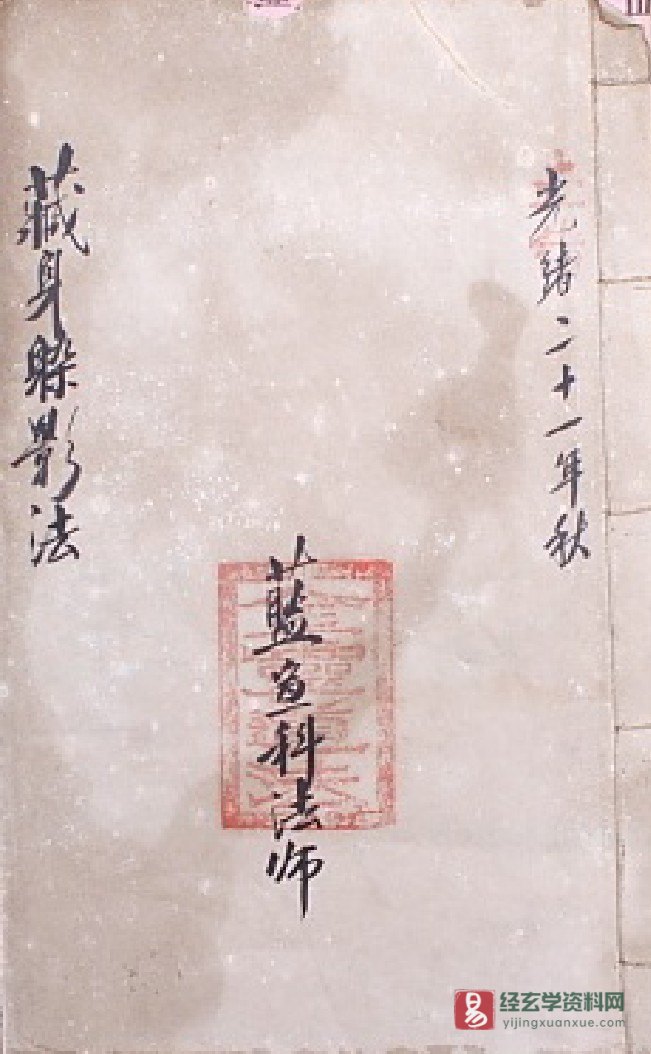 光绪二十一年秋
藍宣科法师
藏身躲影法
易 经玄学资料网
yijingxuanxue.com